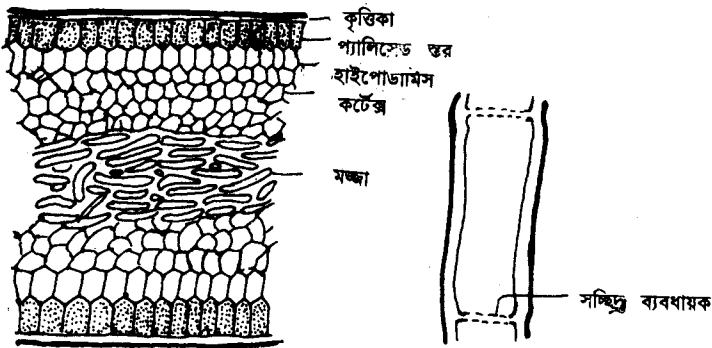 কৃত্তিকা
প্যালিসেড স্তর
হাইপোডার্মিস
কর্টেক্স
মজ্জা
সচ্ছিদ্র ব্যবধায়ক